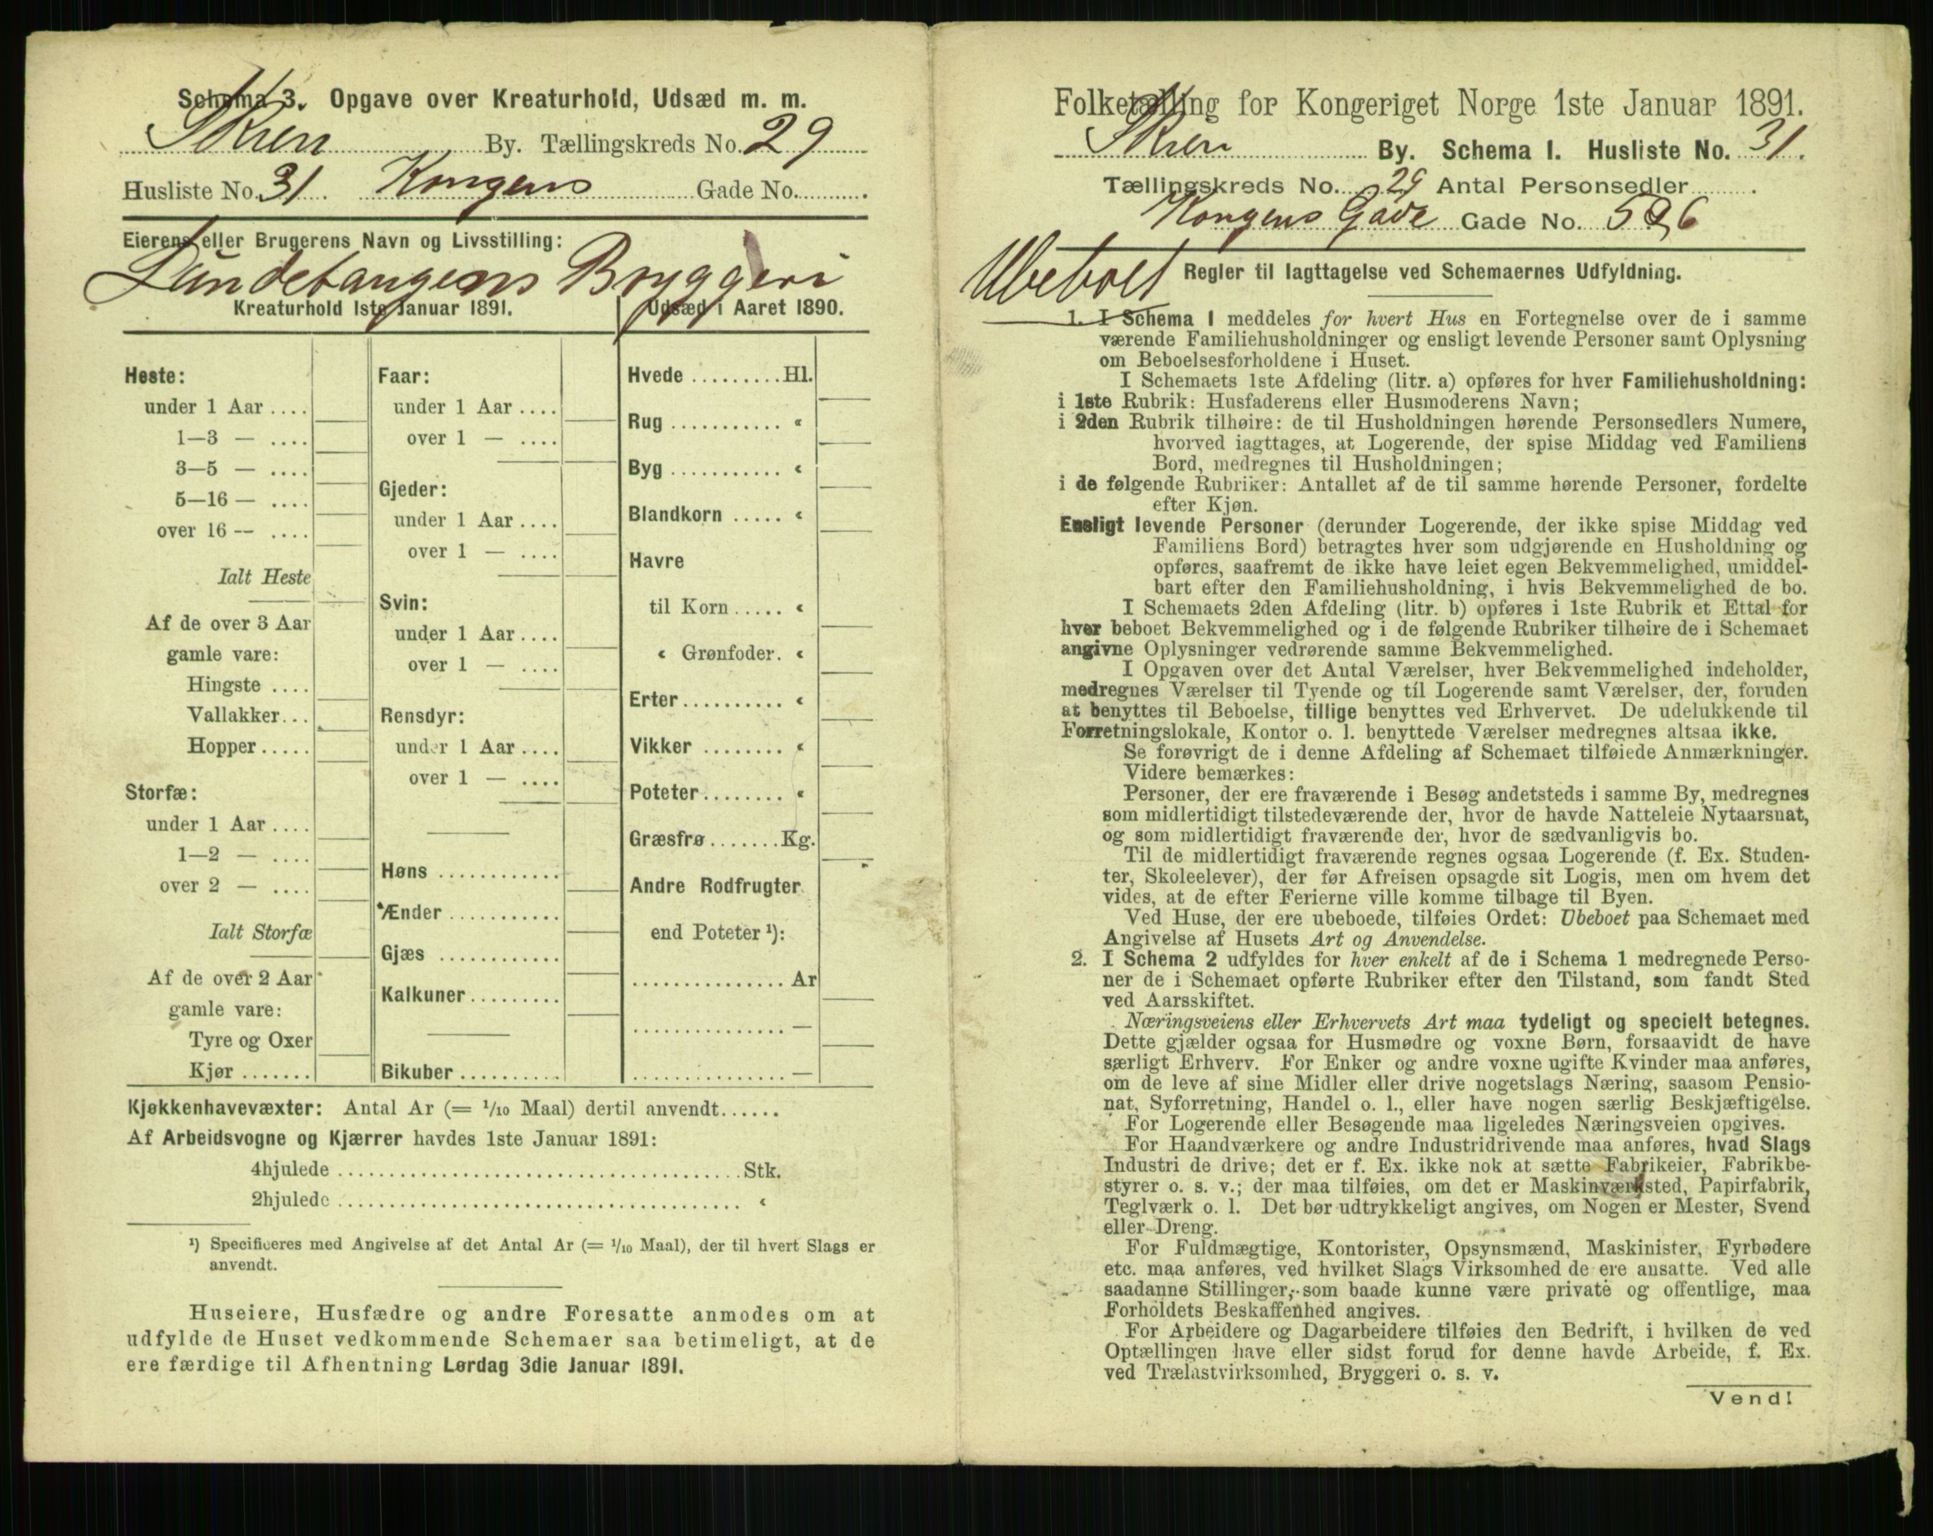 Schema 3. Opgave over Kreaturhold, Udsæd m. m.
Skien By. Tællingskreds No. 29
Husliste No. 31. Kongens Gade No.
Eierens eller Brugerens Navn og Livsstilling:
Lundetangens Bryggeri
Kreaturhold 1ste Januar 1891.
Heste:
under 1 Aar
1—3 —
3—5 —
5—16 —
over 16 —
Ialt Heste
Af de over 3 Aar
gamle vare:
Hingste
Vallakker
Hopper
Storfæ:
under 1 Aar
1—2 —
over 2 —
Ialt Storfæ
Af de over 2 Aar
gamle vare:
Tyre og Oxer
Kjør
Faar:
under 1 Aar
over 1 —
Gjeder:
under 1 Aar
over 1 —
Svin:
under 1 Aar
over 1 —
Rensdyr:
under 1 Aar
over 1 —
Høns
Ænder
Gjæs
Kalkuner
Bikuber
Udsæd i Aaret 1890.
Hvede Hl.
Rug «
Byg «
Blandkorn «
Havre
til Korn «
« Grønfoder. «
Erter «
Vikker «
Poteter «
Græsfrø Kg.
Andre Rodfrugter
end Poteter ¹):
Ar
—
—
Kjøkkenhavevæxter: Antal Ar (= 1/10 Maal) dertil anvendt
Af Arbeidsvogne og Kjærrer havdes 1ste Januar 1891:
4hjulede Stk.
2hjulede «
¹) Specificeres med Angivelse af det Antal Ar (= 1/10 Maal), der til hvert Slags er
anvendt.
Huseiere, Husfædre og andre Foresatte anmodes om at
udfylde de Huset vedkommende Schemaer saa betimeligt, at de
ere færdige til Afhentning Lørdag 3die Januar 1891.
Folketælling for Kongeriget Norge 1ste Januar 1891.
Skien By. Schema I. Husliste No. 31.
Tællingskreds No. 29 Antal Personsedler
Kongens Gade Gade No.
Ubeboet
Regler til Iagttagelse ved Schemaernes Udfyldning.
1. I Schema 1 meddeles for hvert Hus en Fortegnelse over de i samme
værende Familiehusholdninger og ensligt levende Personer samt Oplysning
om Beboelsesforholdene i Huset.
I Schemaets 1ste Afdeling (litr. a) opføres for hver Familiehusholdning:
i 1ste Rubrik: Husfaderens eller Husmoderens Navn;
i 2den Rubrik tilhøire: de til Husholdningen hørende Personsedlers Numere,
hvorved iagttages, at Logerende, der spise Middag ved Familiens
Bord, medregnes til Husholdningen;
i de følgende Rubriker: Antallet af de til samme hørende Personer, fordelte
efter Kjøn.
Ensligt levende Personer (derunder Logerende, der ikke spise Middag ved
Familiens Bord) betragtes hver som udgjørende en Husholdning og
opføres, saafremt de ikke have leiet egen Bekvemmelighed, umiddel-
bart efter den Familiehusholdning, i hvis Bekvemmelighed de bo.
I Schemaets 2den Afdeling (litr. b) opføres i 1ste Rubrik et Ettal for
hver beboet Bekvemmelighed og i de følgende Rubriker tilhøire de i Schemaet
angivne Oplysninger vedrørende samme Bekvemmelighed.
I Opgaven over det Antal Værelser, hver Bekvemmelighed indeholder,
medregnes Værelser til Tyende og til Logerende samt Værelser, der, foruden
at benyttes til Beboelse, tillige benyttes ved Erhvervet. De udelukkende til
Forretningslokale, Kontor o. l. benyttede Værelser medregnes altsaa ikke.
Se forøvrigt de i denne Afdeling af Schemaet tilføiede Anmærkninger.
Videre bemærkes:
Personer, der ere fraværende i Besøg andetsteds i samme By, medregnes
som midlertidigt tilstedeværende der, hvor de havde Natteleie Nytaarsnat,
og som midlertidigt fraværende der, hvor de sædvanligvis bo.
Til de midlertidigt fraværende regnes ogsaa Logerende (f. Ex. Studen-
ter, Skoleelever), der før Afreisen opsagde sit Logis, men om hvem det
vides, at de efter Ferierne ville komme tilbage til Byen.
Ved Huse, der ere ubeboede, tilføies Ordet: Ubeboet paa Schemaet med
Angivelse af Husets Art og Anvendelse.
2. I Schema 2 udfyldes for hver enkelt af de i Schema 1 medregnede Perso-
ner de i Schemaet opførte Rubriker efter den Tilstand, som fandt Sted
ved Aarsskiftet.
Næringsveiens eller Erhvervets Art maa tydeligt og specielt betegnes.
Dette gjælder ogsaa for Husmødre og voxne Børn, forsaavidt de have
særligt Erhverv. For Enker og andre voxne ugifte Kvinder maa anføres,
om de leve af sine Midler eller drive nogetslags Næring, saasom Pensio-
nat, Syforretning, Handel o. l., eller have nogen særlig Beskjæftigelse.
For Logerende eller Besøgende maa ligeledes Næringsveien opgives.
For Haandværkere og andre Industridrivende maa anføres, hvad Slags
Industri de drive; det er f. Ex. ikke nok at sætte Fabrikeier, Fabrikbe-
styrer o. s. v.; der maa tilføies, om det er Maskinværksted, Papirfabrik,
Teglværk o. l. Det bør udtrykkeligt angives, om Nogen er Mester, Svend
eller Dreng.
For Fuldmægtige, Kontorister, Opsynsmænd, Maskinister, Fyrbødere
etc. maa anføres, ved hvilket Slags Virksomhed de ere ansatte. Ved alle
saadanne Stillinger, som baade kunne være private og offentlige, maa
Forholdets Beskaffenhed angives.
For Arbeidere og Dagarbeidere tilføies den Bedrift, i hvilken de ved
Optællingen have eller sidst forud for denne havde Arbeide, f. Ex.
ved Trælastvirksomhed, Bryggeri o. s. v.
Vend!